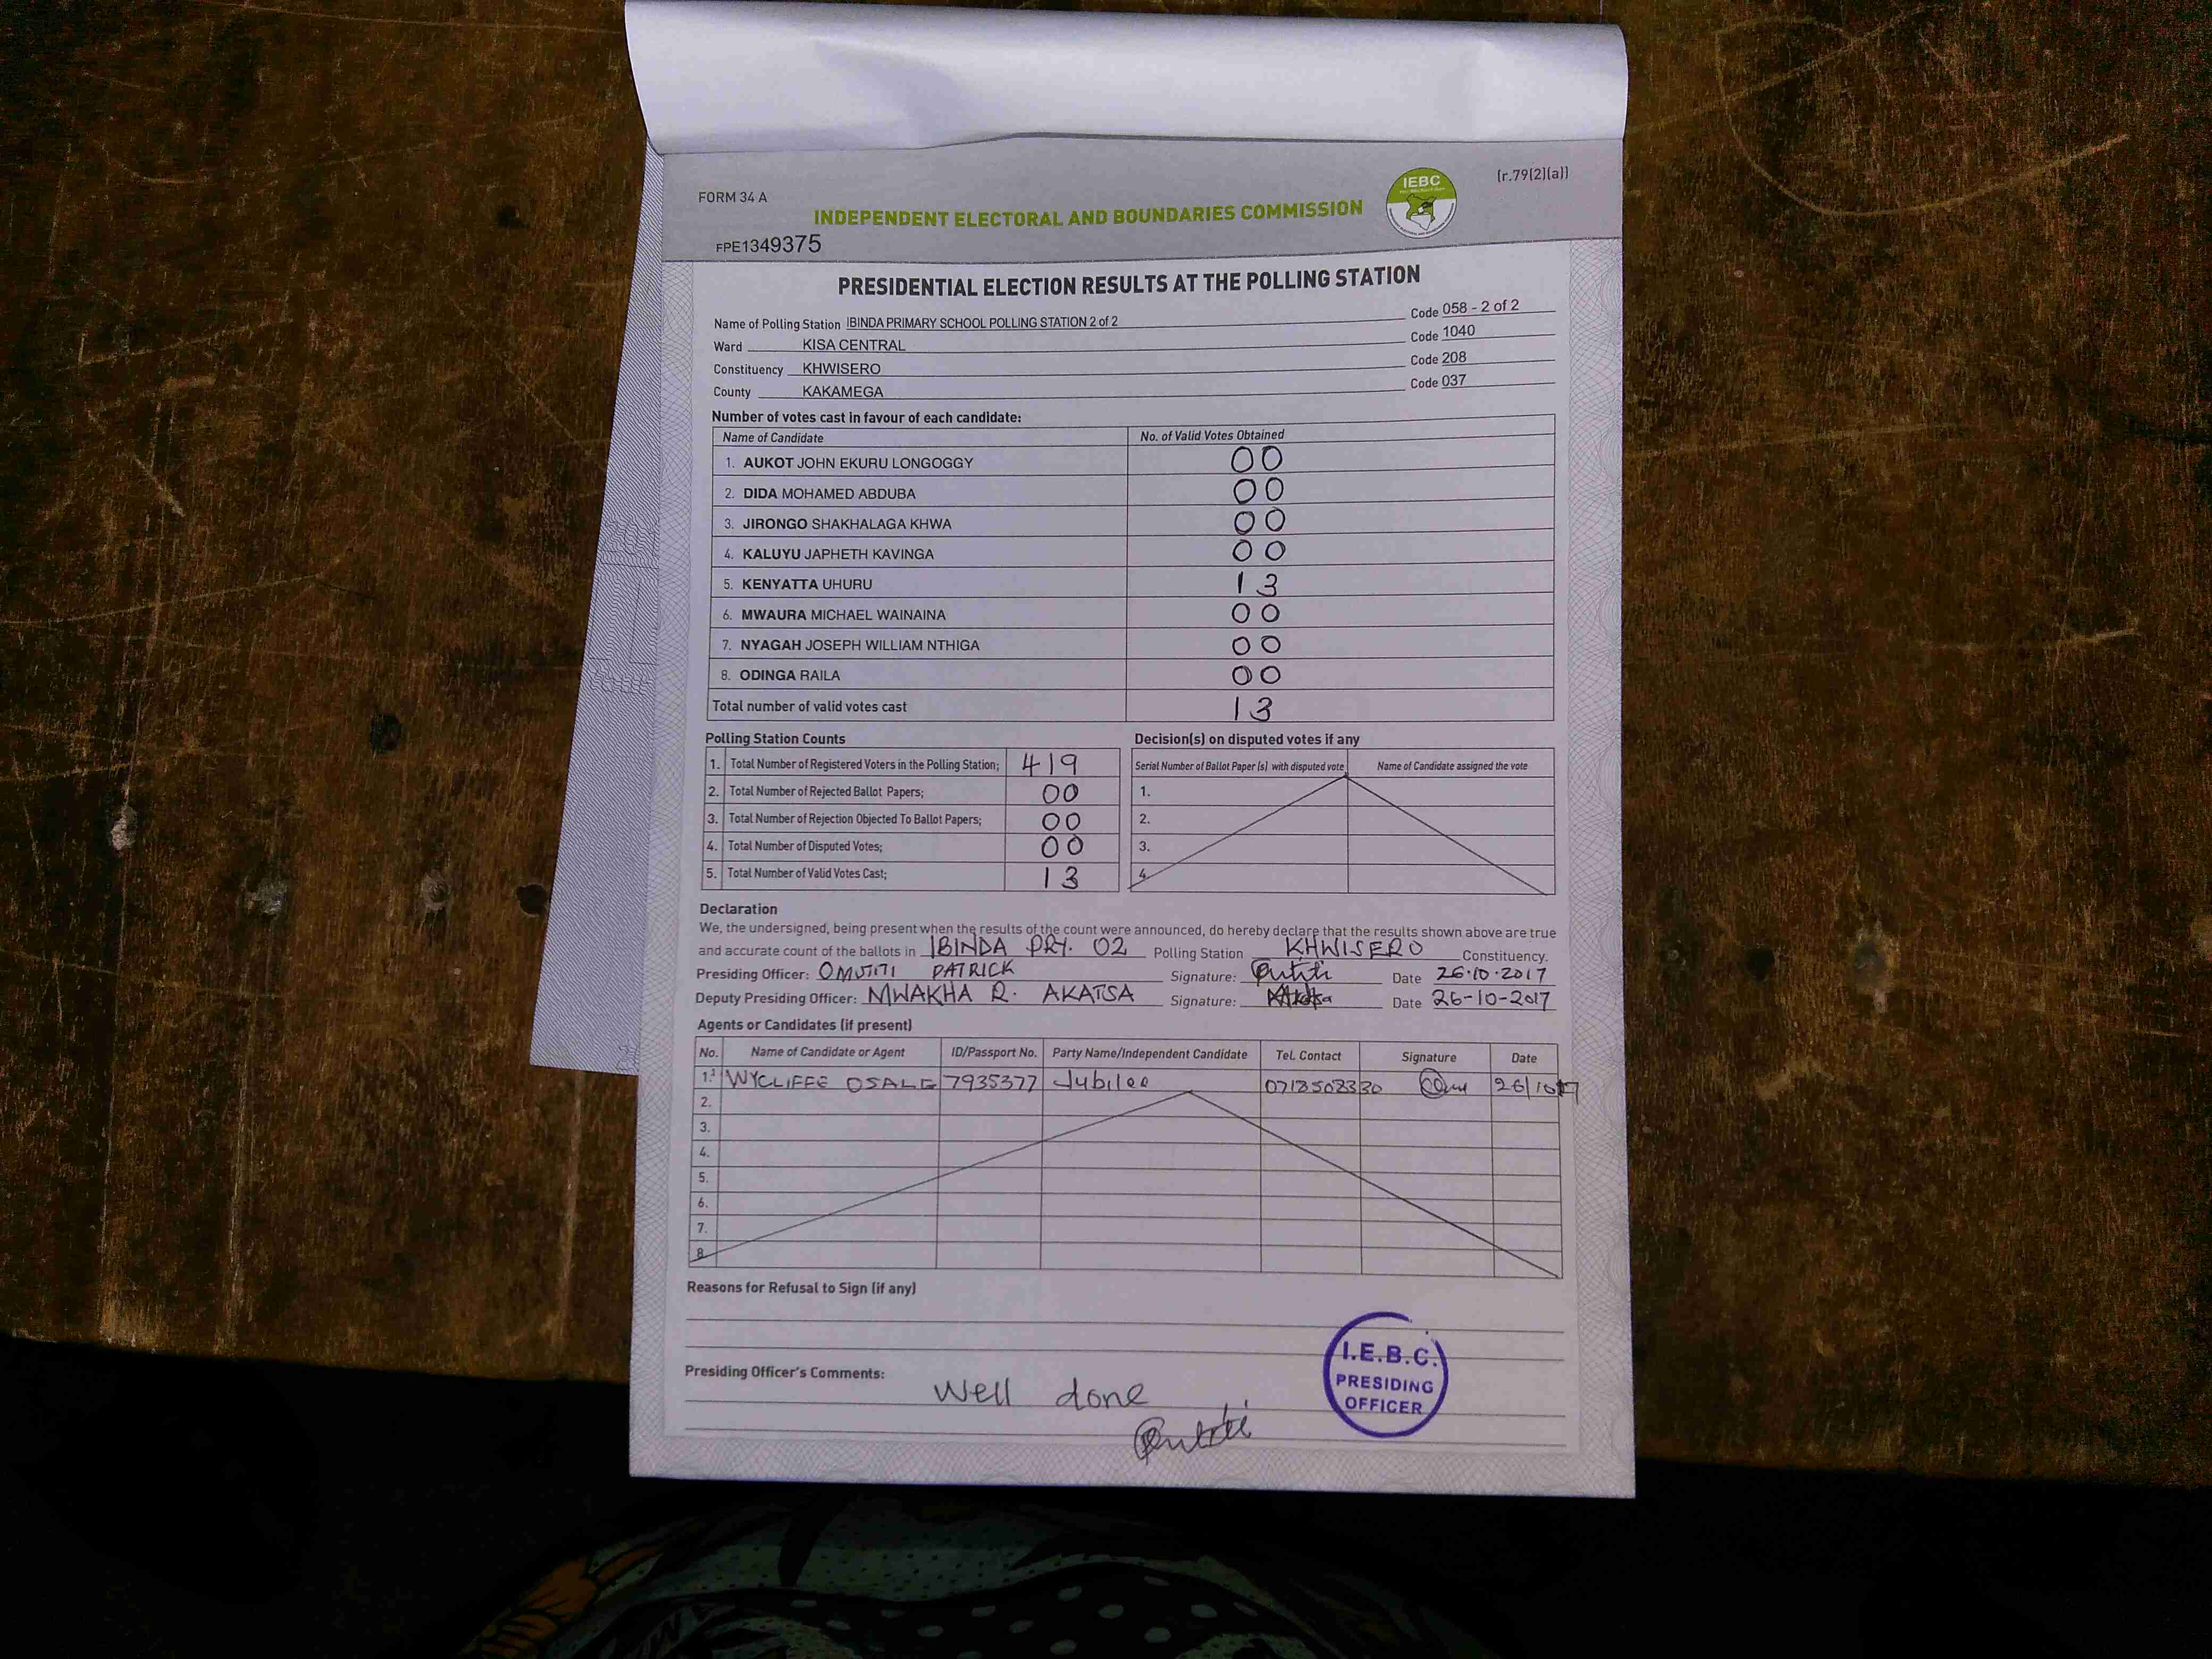 FORM 34 A
INDEPENDENT ELECTORAL AND BOUNDARIES COMMISSION
IEBC
(r.79(2)(a))
FPE1349375
PRESIDENTIAL ELECTION RESULTS AT THE POLLING STATION
Name of Polling Station IBINDA PRIMARY SCHOOL POLLING STATION 2 of 2 Code 058 - 2 of 2
Ward KISA CENTRAL Code 1040
Constituency KHWISERO Code 208
County KAKAMEGA Code 037
Number of votes cast in favour of each candidate:
Name of Candidate No. of Valid Votes Obtained
1. AUKOT JOHN EKURU LONGOGGY 00
2. DIDA MOHAMED ABDUBA 00
3. JIRONGO SHAKHALAGA KHWA 00
4. KALUYU JAPHETH KAVINGA 00
5. KENYATTA UHURU 13
6. MWAURA MICHAEL WAINAINA 00
7. NYAGAH JOSEPH WILLIAM NTHIGA 00
8. ODINGA RAILA 00
Total number of valid votes cast 13
Polling Station Counts
1. Total Number of Registered Voters in the Polling Station; 419
2. Total Number of Rejected Ballot Papers; 00
3. Total Number of Rejection Objected To Ballot Papers; 00
4. Total Number of Disputed Votes; 00
5. Total Number of Valid Votes Cast; 13
Decision(s) on disputed votes if any
Serial Number of Ballot Paper (s) with disputed vote Name of Candidate assigned the vote
1.
2.
3.
4.
Declaration
We, the undersigned, being present when the results of the count were announced, do hereby declare that the results shown above are true
and accurate count of the ballots in IBINDA PRY. 02 Polling Station KHWISERO Constituency.
Presiding Officer: OMUTITI PATRICK Signature: Date 26.10.2017
Deputy Presiding Officer: MWAKHA R. AKATSA Signature: Date 26-10-2017
Agents or Candidates (if present)
No. Name of Candidate or Agent ID/Passport No. Party Name/Independent Candidate Tel. Contact Signature Date
1. WYCLIFFE 7935377 Jubilee 26/10/17
2.
3.
4.
5.
6.
7.
8.
Reasons for Refusal to Sign (if any)
Presiding Officer's Comments: Well done
I.E.B.C.
PRESIDING
OFFICER